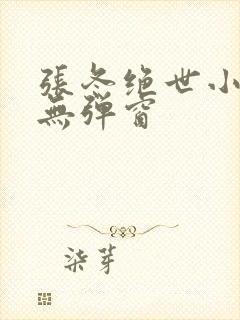 張冬绝世小
無彈窗
柒芽